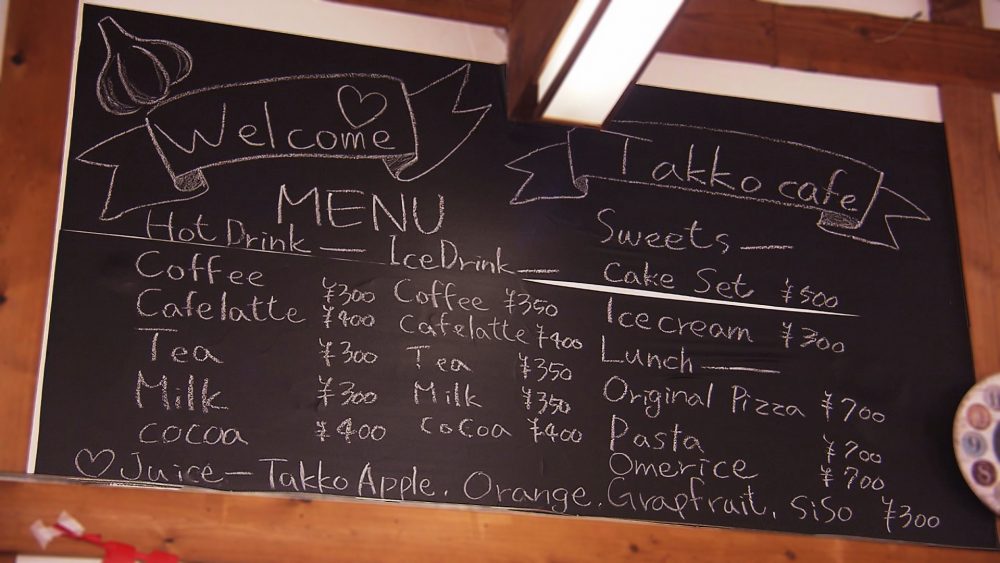 Welcome
Takko cafe
MENU
Hot Drink
Coffee ¥300
Cafelatte ¥400
Tea ¥300
Milk ¥300
cocoa ¥400
Ice Drink
Coffee ¥350
Cafelatte ¥400
Tea ¥350
Milk ¥350
CoCoa ¥400
Sweets
Cake Set ¥500
Icecream ¥300
Lunch
Original Pizza ¥700
Pasta ¥700
Omerice ¥700
♡Juice - Takko Apple, Orange, Grapfruit, siso ¥300